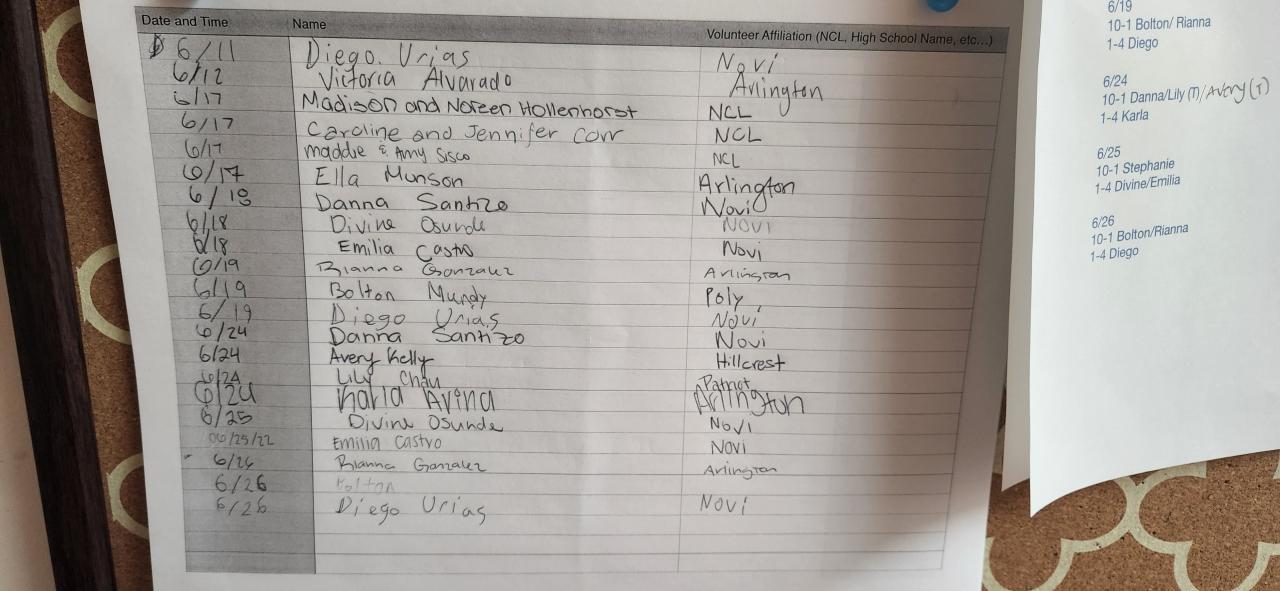 Date and Time Name Volunteer Affiliation (NCL, High School Name, etc...)
6/11 Diego Urias Novi
6/12 Victoria Alvarado Arlington
6/17 Madison and Noreen Hollenhorst NCL
6/17 Caroline and Jennifer Corr NCL
6/17 maddie & Amy Sisco NCL
6/17 Ella Munson Arlington
6/18 Danna Santizo Novi
6/18 Divine Osunde NOVI
6/18 Emilia Castro Novi
6/19 Rianna Gonzalez Arlington
6/19 Bolton Mundy Poly
6/19 Diego Urias Novi
6/24 Danna Santizo Novi
6/24 Avery Kelly Hillcrest
6/24 Lily Chau Patriot
6/24 Karla Avina Arlington
6/25 Divine Osunde Novi
06/25/22 Emilia Castro Novi
6/26 Rianna Gonzalez Arlington
6/26 Bolton
6/26 Diego Urias Novi
6/19
10-1 Bolton/ Rianna
1-4 Diego
6/24
10-1 Danna/Lily (T)/Avery (T)
1-4 Karla
6/25
10-1 Stephanie
1-4 Divine/Emilia
6/26
10-1 Bolton/Rianna
1-4 Diego